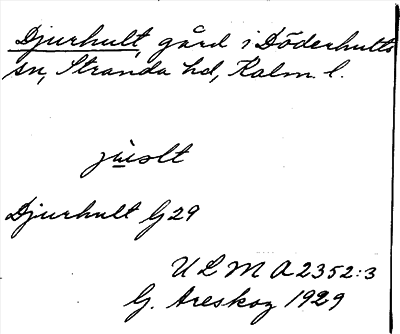 Djurhult, gård i Döderhults
sn, Stranda hd, Kalm. l.
jùolt
Djurhult G 29
U L M A 2352:3
G. Areskog 1929